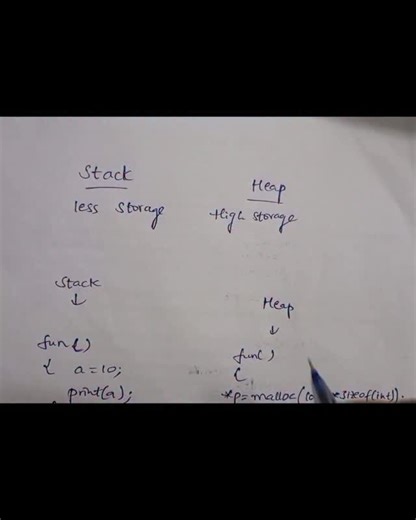 Stack
less Storage
Heap
High storage
Stack
↓
fun()
{ a=10;
print(a);
Heap
↓
fun()
{
*p=malloc( sizeof(int)).